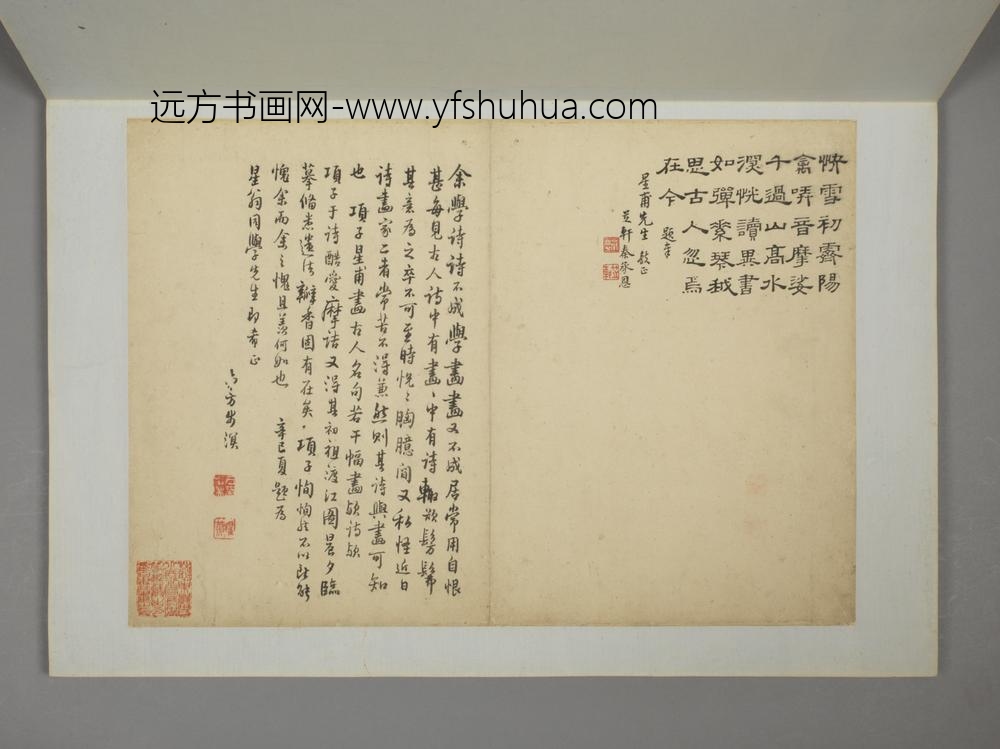 远方书画网-www.yfshuhua.com
快雪初霽陽
禽哢音摩娑
千過山高水
深恍讀異書
如彈秦琴我
思古人忽焉
在今
題奉
星甫先生 教正
芝軒秦承恩
余學詩詩不成學畫畫又不成居常用自恨
甚每見古人詩中有畫畫中有詩輙欲髣髴
其意為之卒不可至時恍恍胸臆間又私怪近日
詩畫家二者常苦不得兼然則其詩與畫可知
也 項子星甫畫古人名句若干幅畫歟詩歟
項子于詩酷愛摩詰又得其初祖渡江圖晨夕臨
摹脩悉遺法瓣香固有在矣項子恂恂然不以此能
愧余而余之愧且羨何如也 辛巳夏題為
星翁同學先生即希正